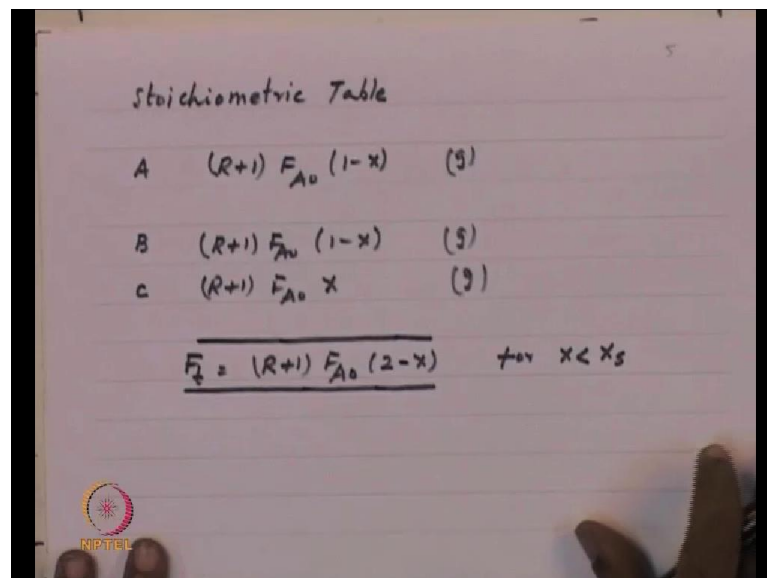 5
Stoichiometric Table
A (R+1) F_{A0} (1-x) (g)
B (R+1) F_{A0} (1-x) (g)
C (R+1) F_{A0} x (g)
F_t = (R+1) F_{A0} (2-x) for x < x_s
NPTEL